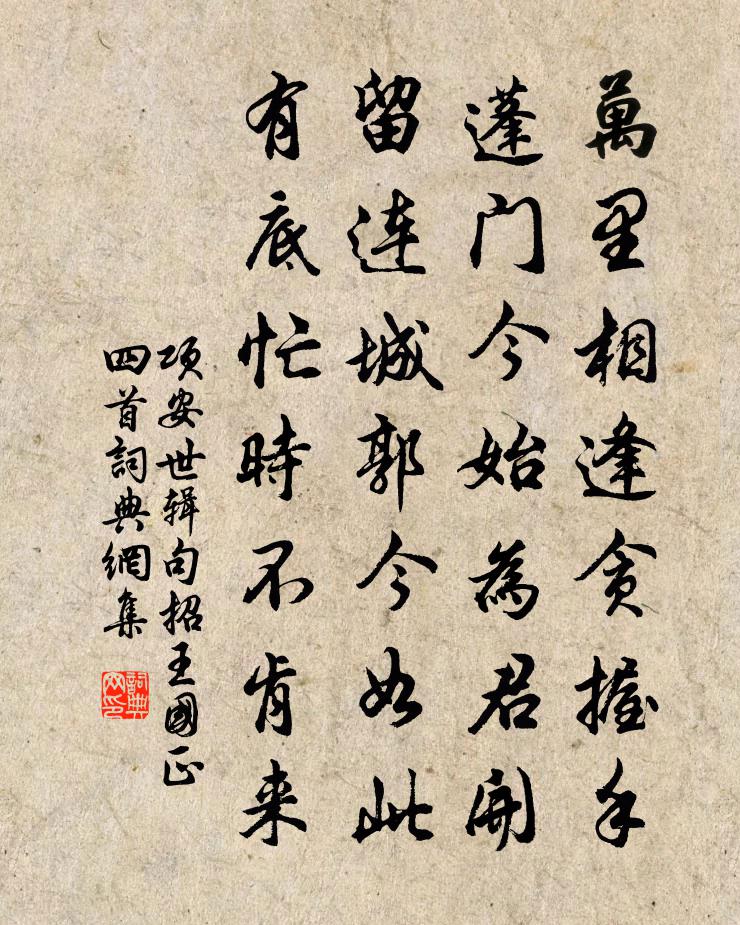 萬里相逢貪握手
蓬门今始為君開
留連城郭今如此
有底忙時不肯来
项安世辑句招王國正
四首詞典網集
詞典
网印